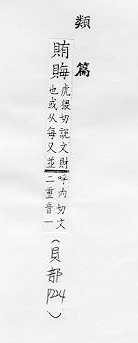 類篇
賄
虎猥切說文財
也或从每又並
呼内切文
二重音一
(貝部